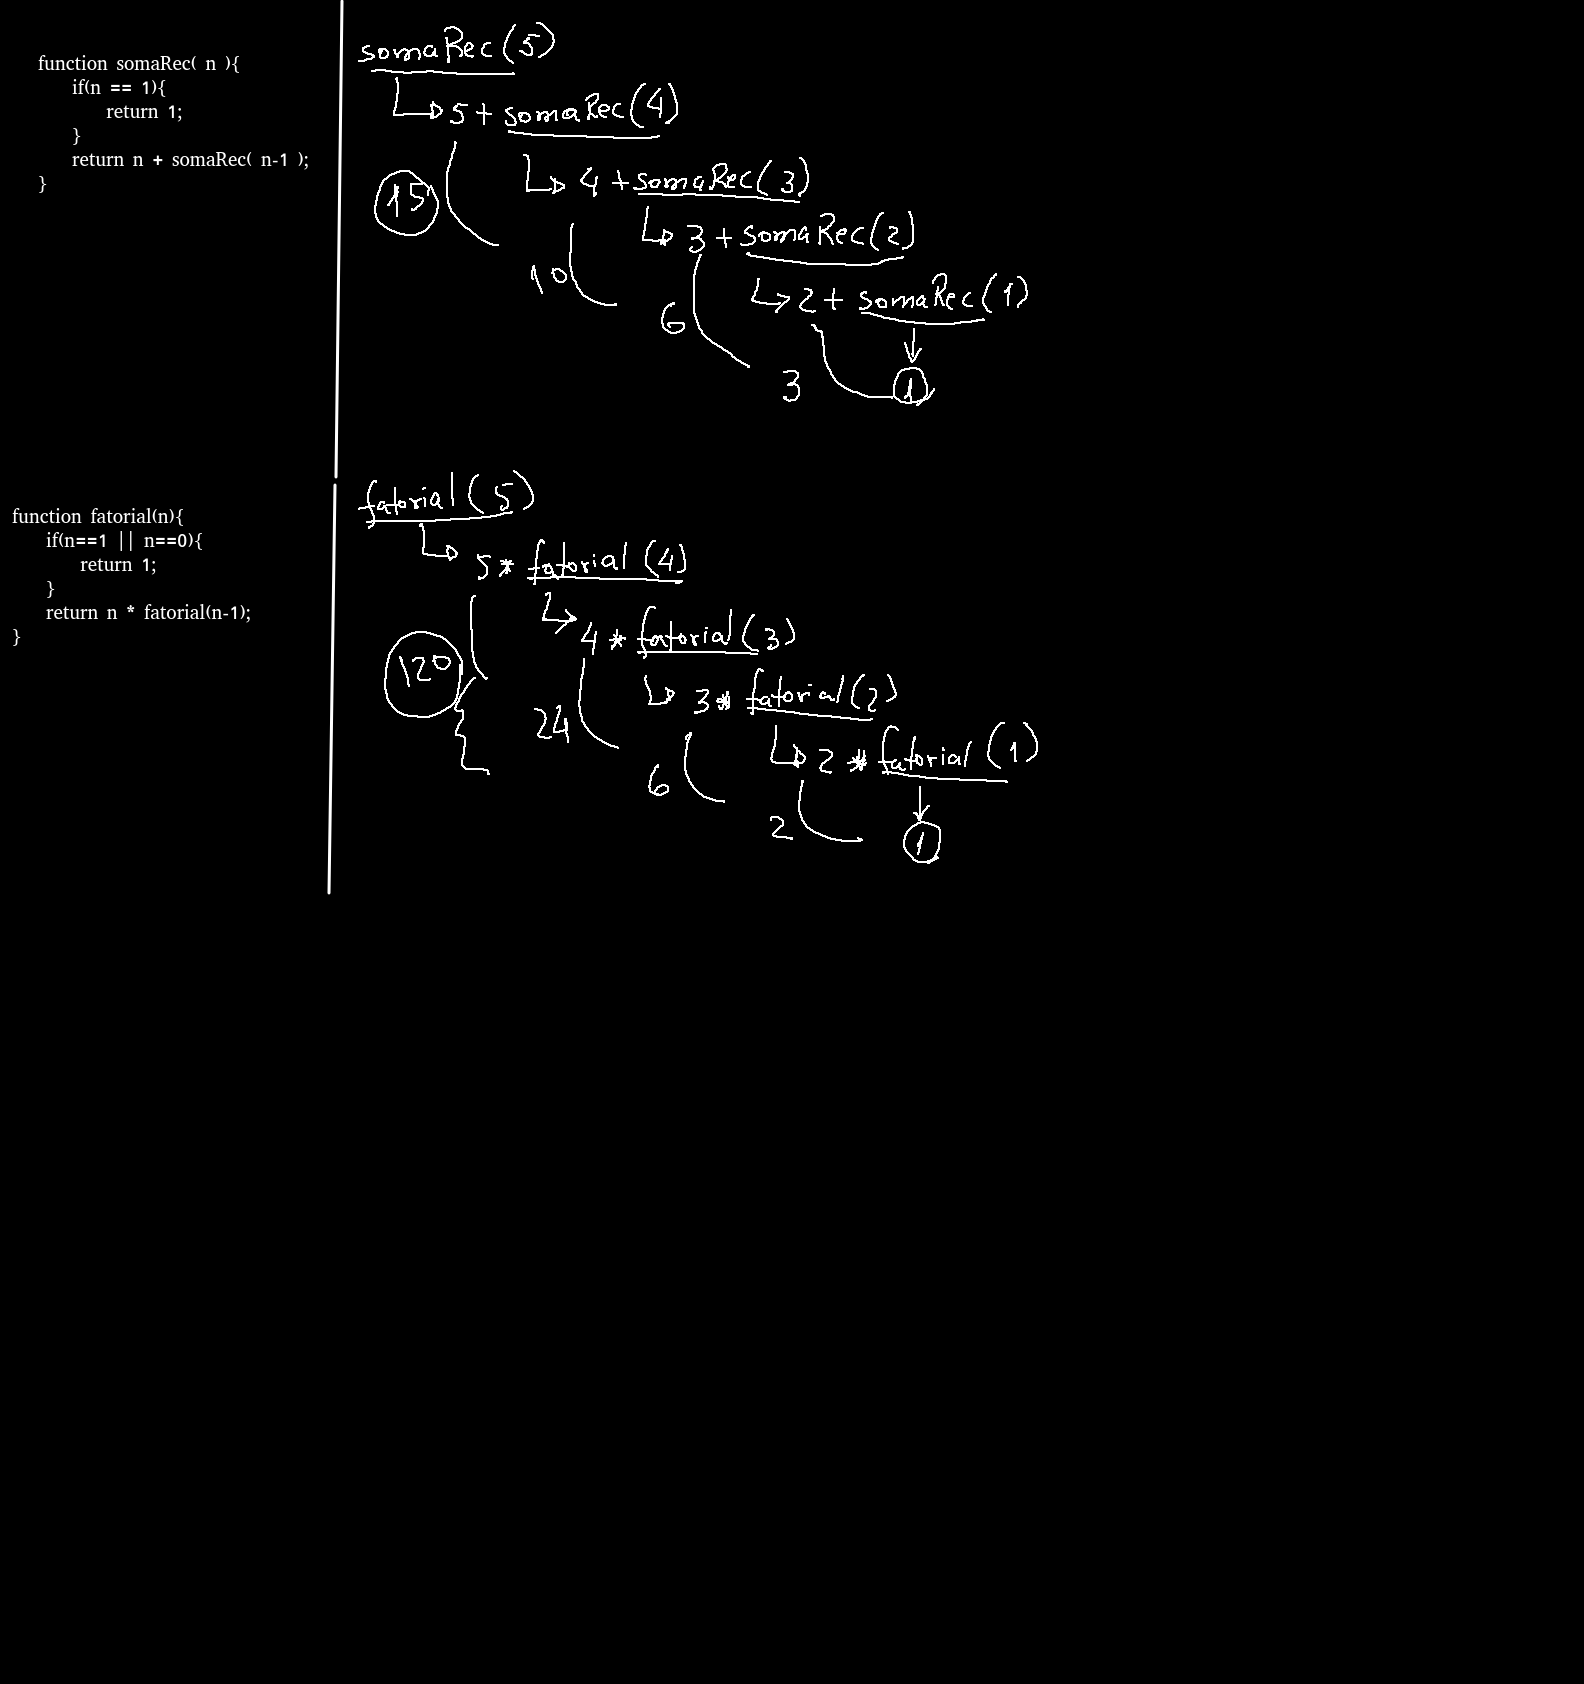 function somaRec( n ){
if(n == 1){
return 1;
}
return n + somaRec( n-1 );
}
somaRec(5)
5 + somaRec(4)
4 + somaRec(3)
15
3 + somaRec(2)
10
2 + somaRec(1)
6
3
1
function fatorial(n){
if(n==1 || n==0){
return 1;
}
return n * fatorial(n-1);
}
fatorial(5)
5 * fatorial(4)
4 * fatorial(3)
120
3 * fatorial(2)
24
2 * fatorial(1)
6
2
1